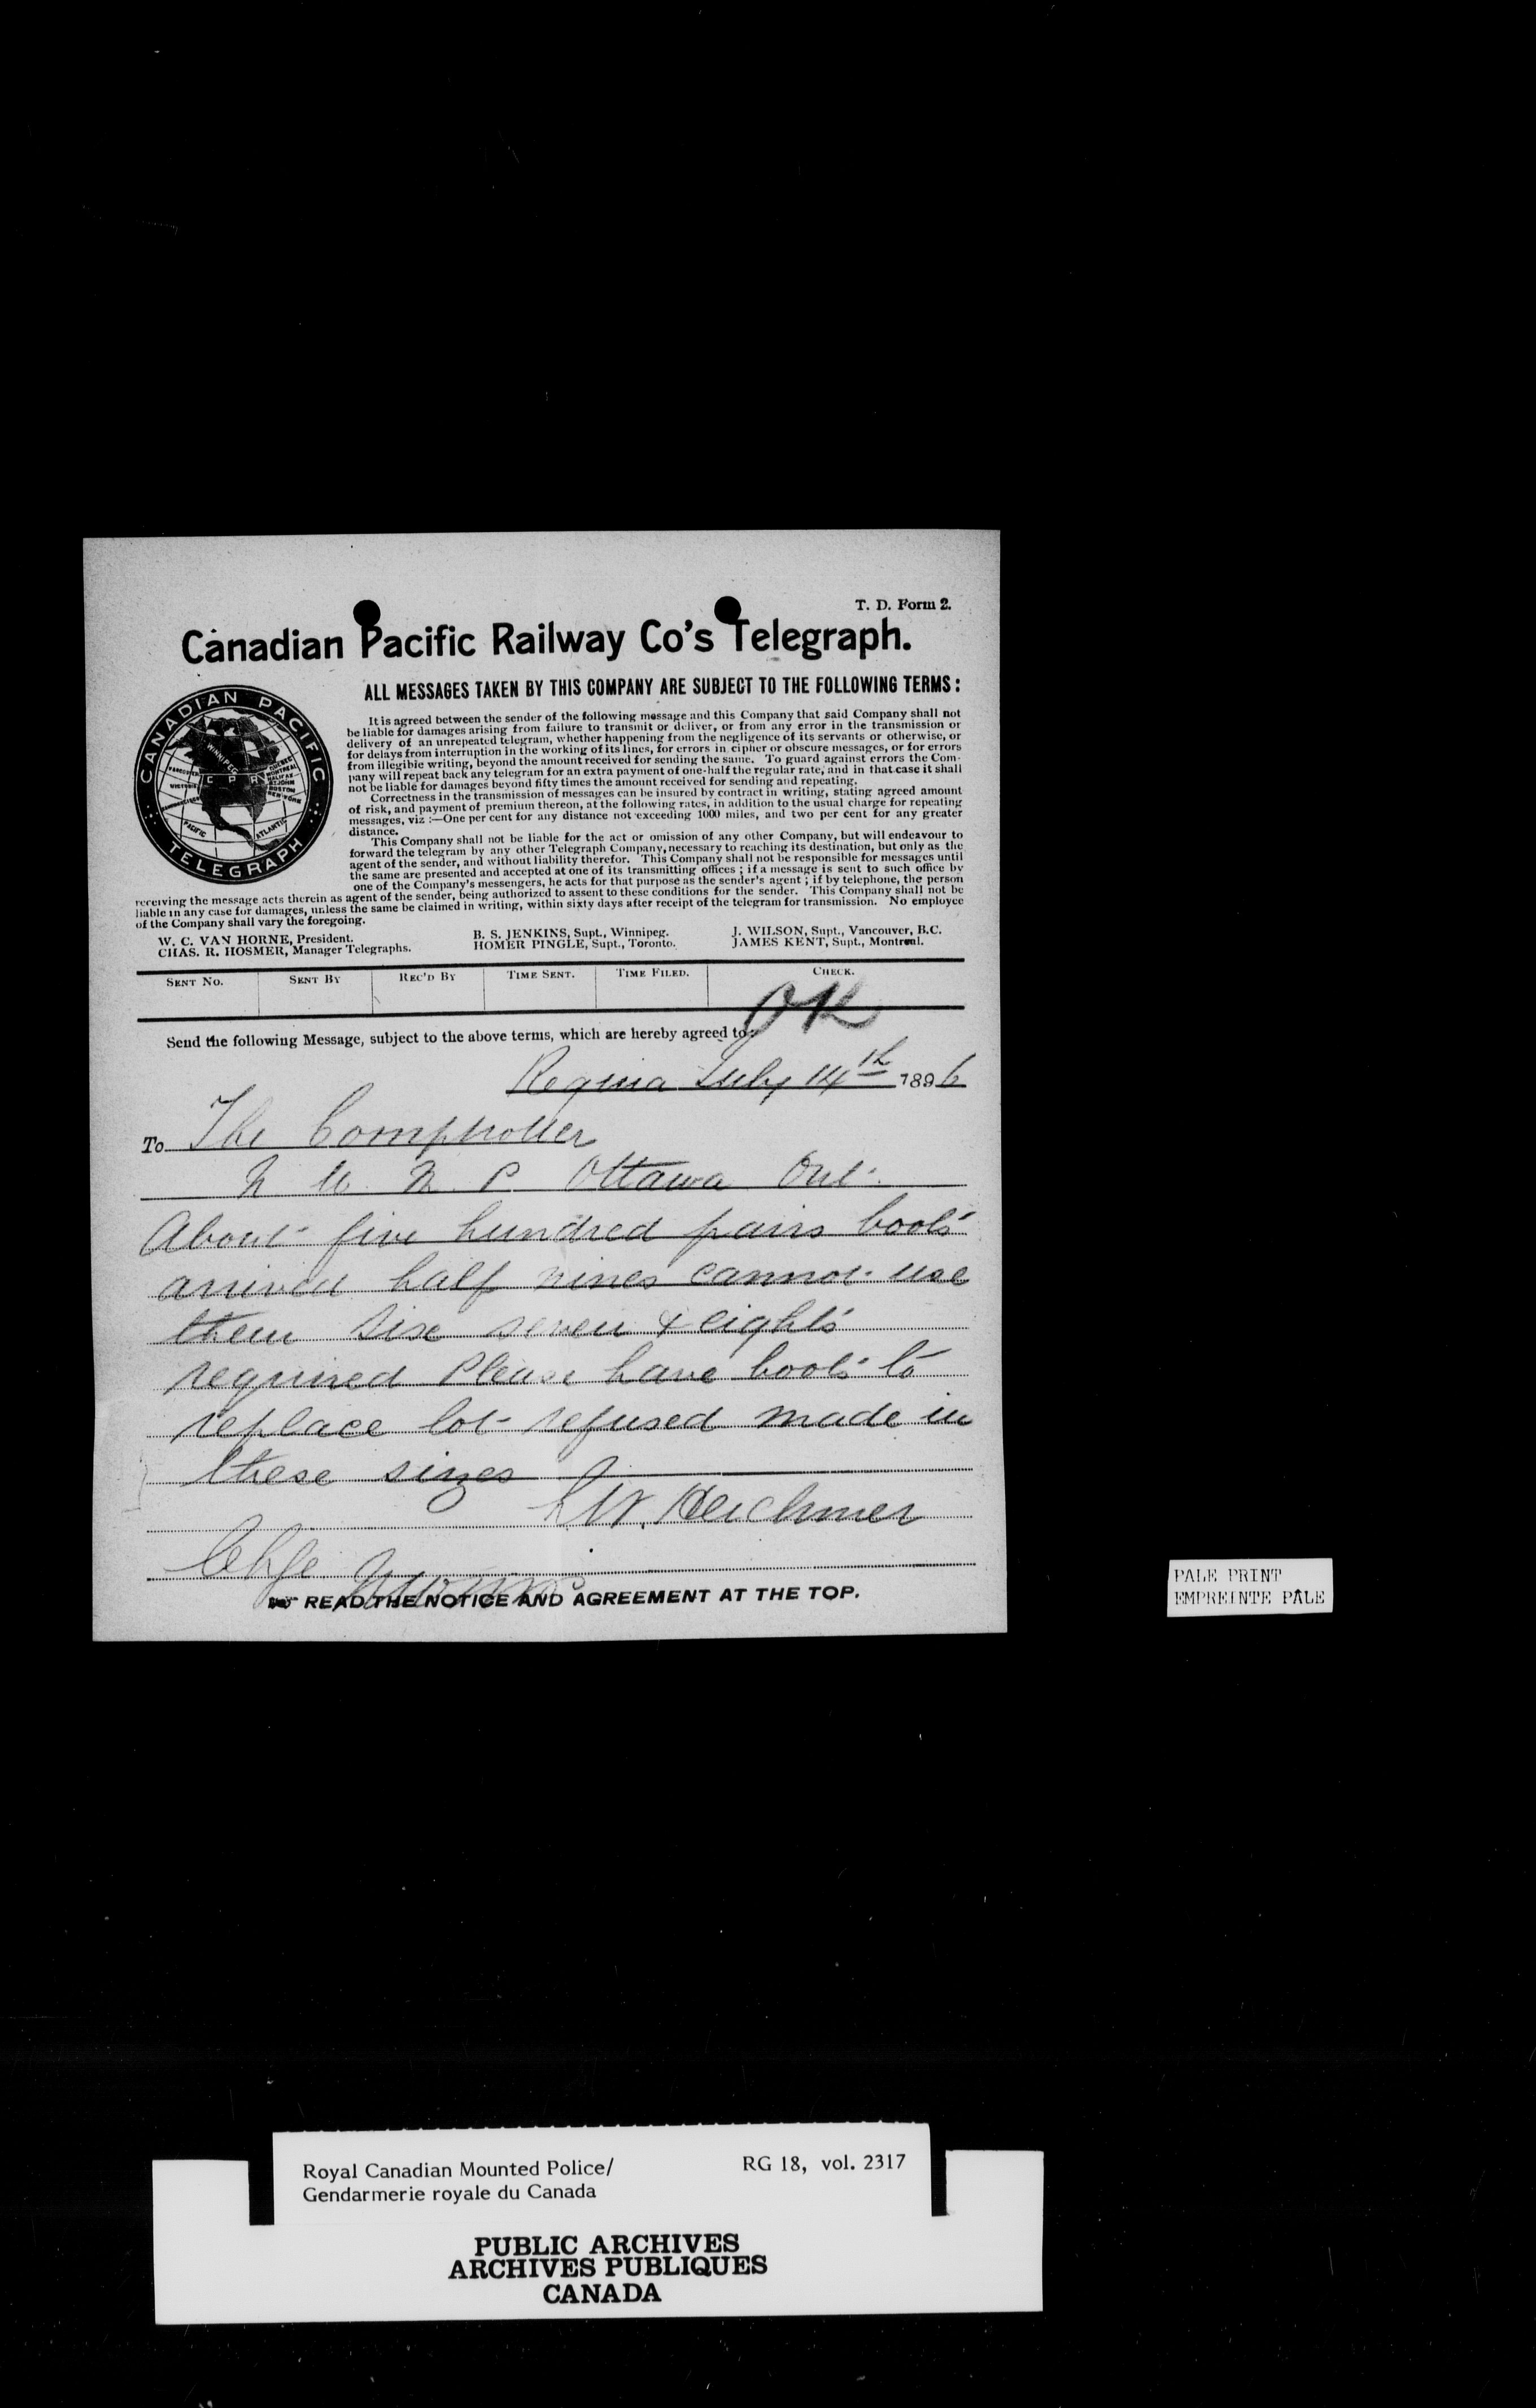 T. D. Form 2.
Canadian Pacific Railway Co's Telegraph.
ALL MESSAGES TAKEN BY THIS COMPANY ARE SUBJECT TO THE FOLLOWING TERMS:
CANADIAN PACIFIC
TELEGRAPH
WINNIPEG
C P R
PACIFIC
ATLANTIC
It is agreed between the sender of the following message and this Company that said Company shall not
be liable for damages arising from failure to transmit or deliver, or from any error in the transmission or
delivery of an unrepeated telegram, whether happening from the negligence of its servants or otherwise, or
for delays from interruption in the working of its lines, for errors in cipher or obscure messages, or for errors
from illegible writing, beyond the amount received for sending the same. To guard against errors the Com-
pany will repeat back any telegram for an extra payment of one-half the regular rate, and in that case it shall
not be liable for damages beyond fifty times the amount received for sending and repeating.
Correctness in the transmission of messages can be insured by contract in writing, stating agreed amount
of risk, and payment of premium thereon, at the following rates, in addition to the usual charge for repeating
messages, viz :—One per cent for any distance not exceeding 1000 miles, and two per cent for any greater
distance.
This Company shall not be liable for the act or omission of any other Company, but will endeavour to
forward the telegram by any other Telegraph Company, necessary to reaching its destination, but only as the
agent of the sender, and without liability therefor. This Company shall not be responsible for messages until
the same are presented and accepted at one of its transmitting offices ; if a message is sent to such office by
one of the Company's messengers, he acts for that purpose as the sender's agent ; if by telephone, the person
receiving the message acts therein as agent of the sender, being authorized to assent to these conditions for the sender. This Company shall not be
liable in any case for damages, unless the same be claimed in writing, within sixty days after receipt of the telegram for transmission. No employee
of the Company shall vary the foregoing.
W. C. VAN HORNE, President. B. S. JENKINS, Supt., Winnipeg. J. WILSON, Supt., Vancouver, B.C.
CHAS. R. HOSMER, Manager Telegraphs. HOMER PINGLE, Supt., Toronto. JAMES KENT, Supt., Montreal.
SENT NO. SENT BY REC'D BY TIME SENT. TIME FILED. CHECK.
OK
Send the following Message, subject to the above terms, which are hereby agreed to:
Regina July 14th 1896
To The Comptroller
N W M P Ottawa Ont.
About five hundred pairs boots
arrived half nines cannot use
them size seven & eights
required Please have boots to
replace lot refused made in
these sizes
L W. Herchmer
Chge
READ THE NOTICE AND AGREEMENT AT THE TOP.
PALE PRINT
EMPREINTE PALE
Royal Canadian Mounted Police/ RG 18, vol. 2317
Gendarmerie royale du Canada
PUBLIC ARCHIVES
ARCHIVES PUBLIQUES
CANADA